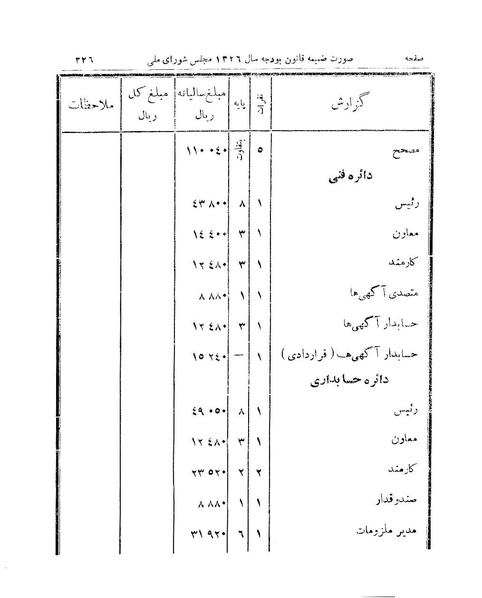 صفحه صورت ضمیمه قانون بودجه سال ۱۳۲۶ مجلس شورای ملی ۳۲۶
گزارش نفرات پایه مبلغ سالیانه ریال مبلغ کل ریال ملاحظات
مصحح ۵ بتفاوت ۱۱۰ ۰۴۰
دائره فنی
رئیس ۱ ۸ ۴۳ ۸۰۰
معاون ۱ ۳ ۱۴ ۴۰۰
کارمند ۱ ۳ ۱۲ ۴۸۰
متصدی آگهی‌ها ۱ ۱ ۸ ۸۸۰
حسابدار آگهی‌ها ۱ ۳ ۱۲ ۴۸۰
حسابدار آگهی‌ها (قراردادی) ۱ — ۱۵ ۲۴۰
دائره حسابداری
رئیس ۱ ۸ ۴۹ ۰۵۰
معاون ۱ ۳ ۱۲ ۴۸۰
کارمند ۲ ۲ ۲۳ ۵۲۰
صندوقدار ۱ ۱ ۸ ۸۸۰
مدیر ملزومات ۱ ۶ ۳۱ ۹۲۰